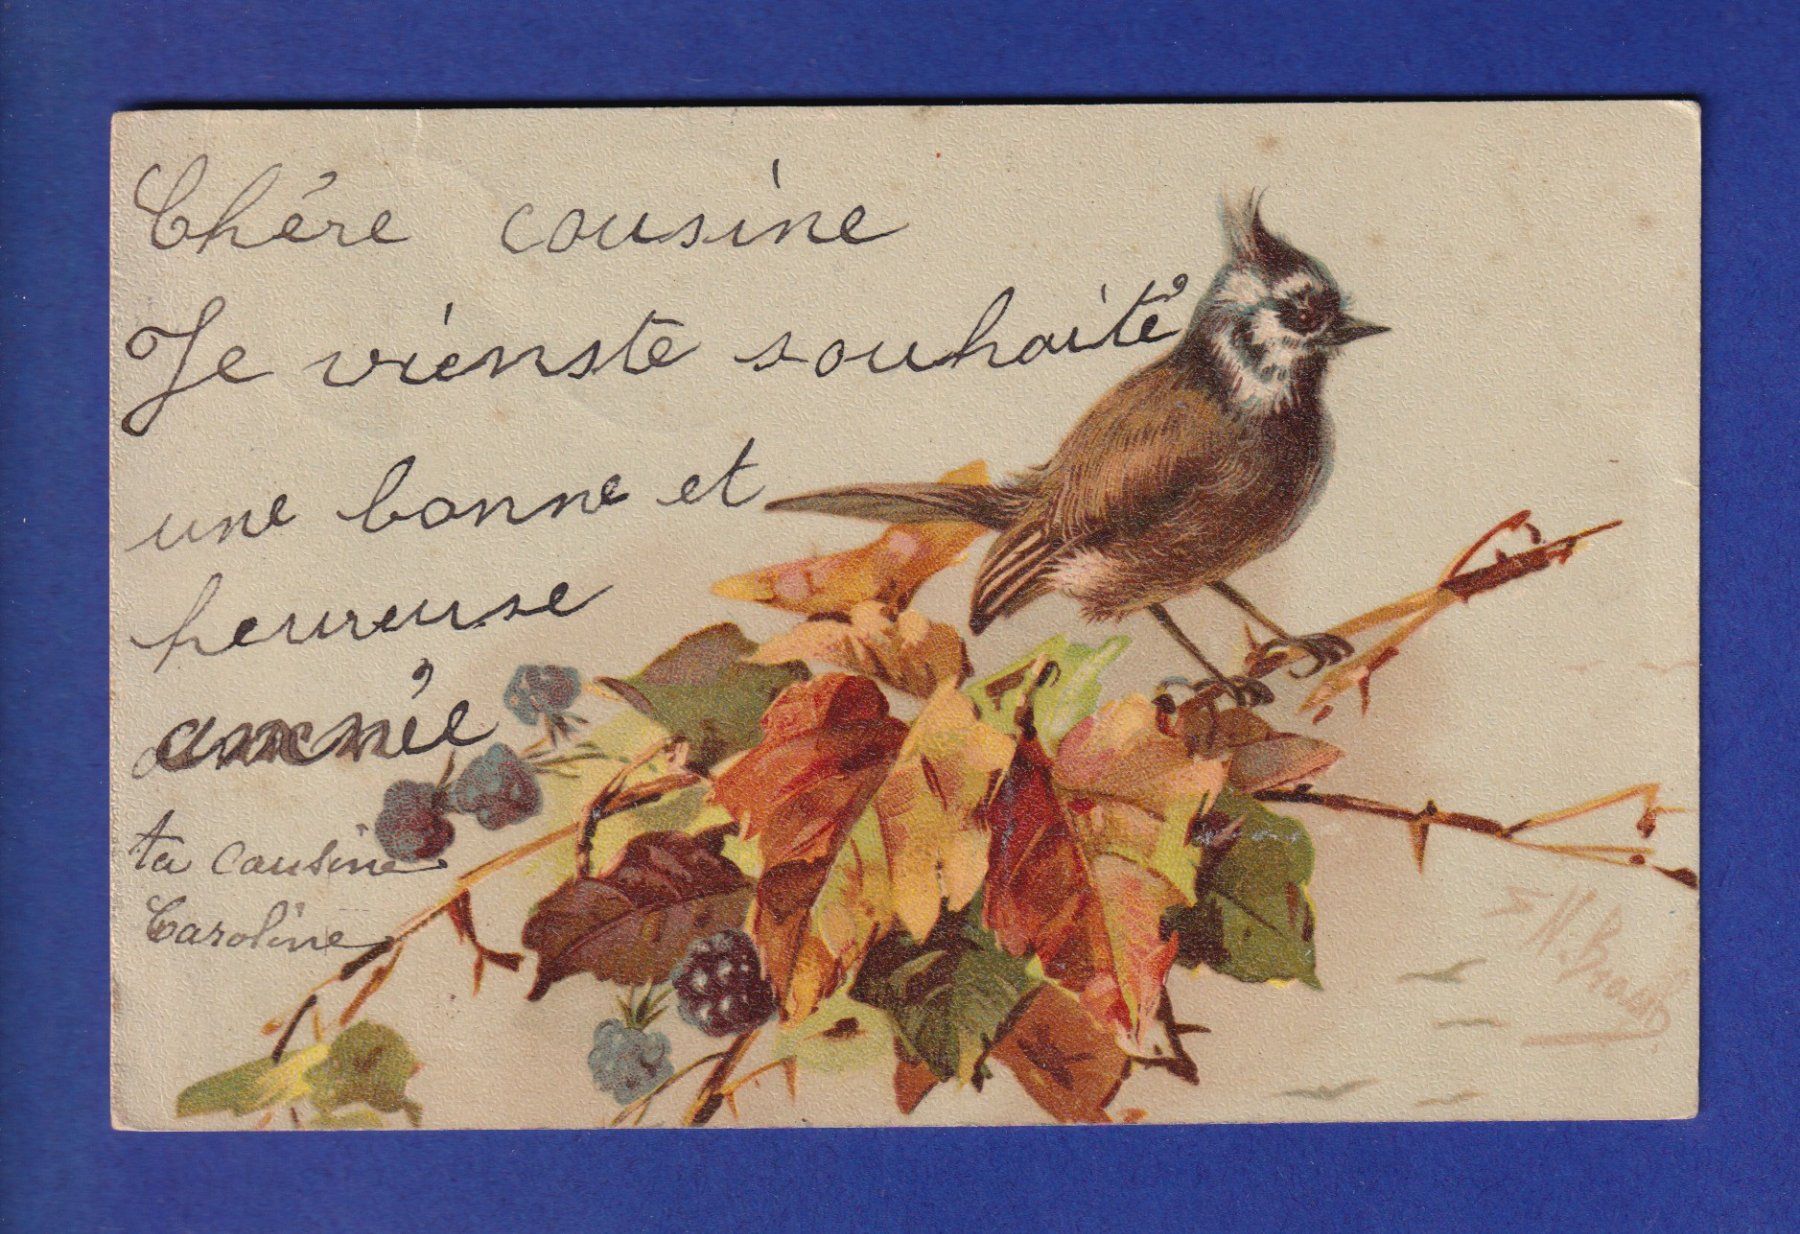 Chére cousine
Je vienste souhaité
une bonne et
heureuse
année
ta cousine
Caroline